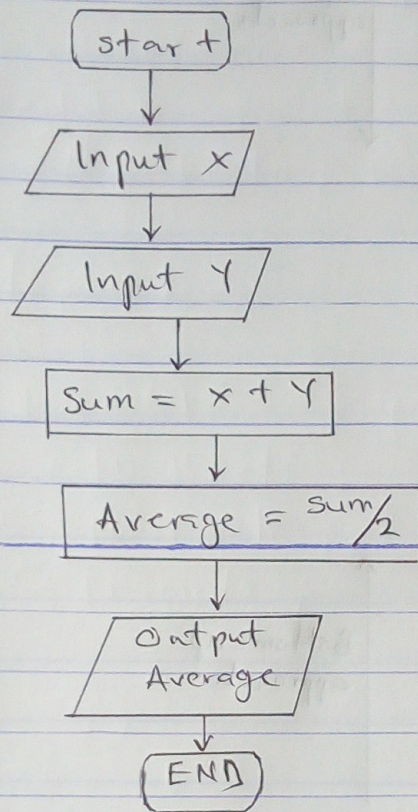 start
Input X
Input Y
Sum = X + Y
Average = sum/2
Output
Average
END